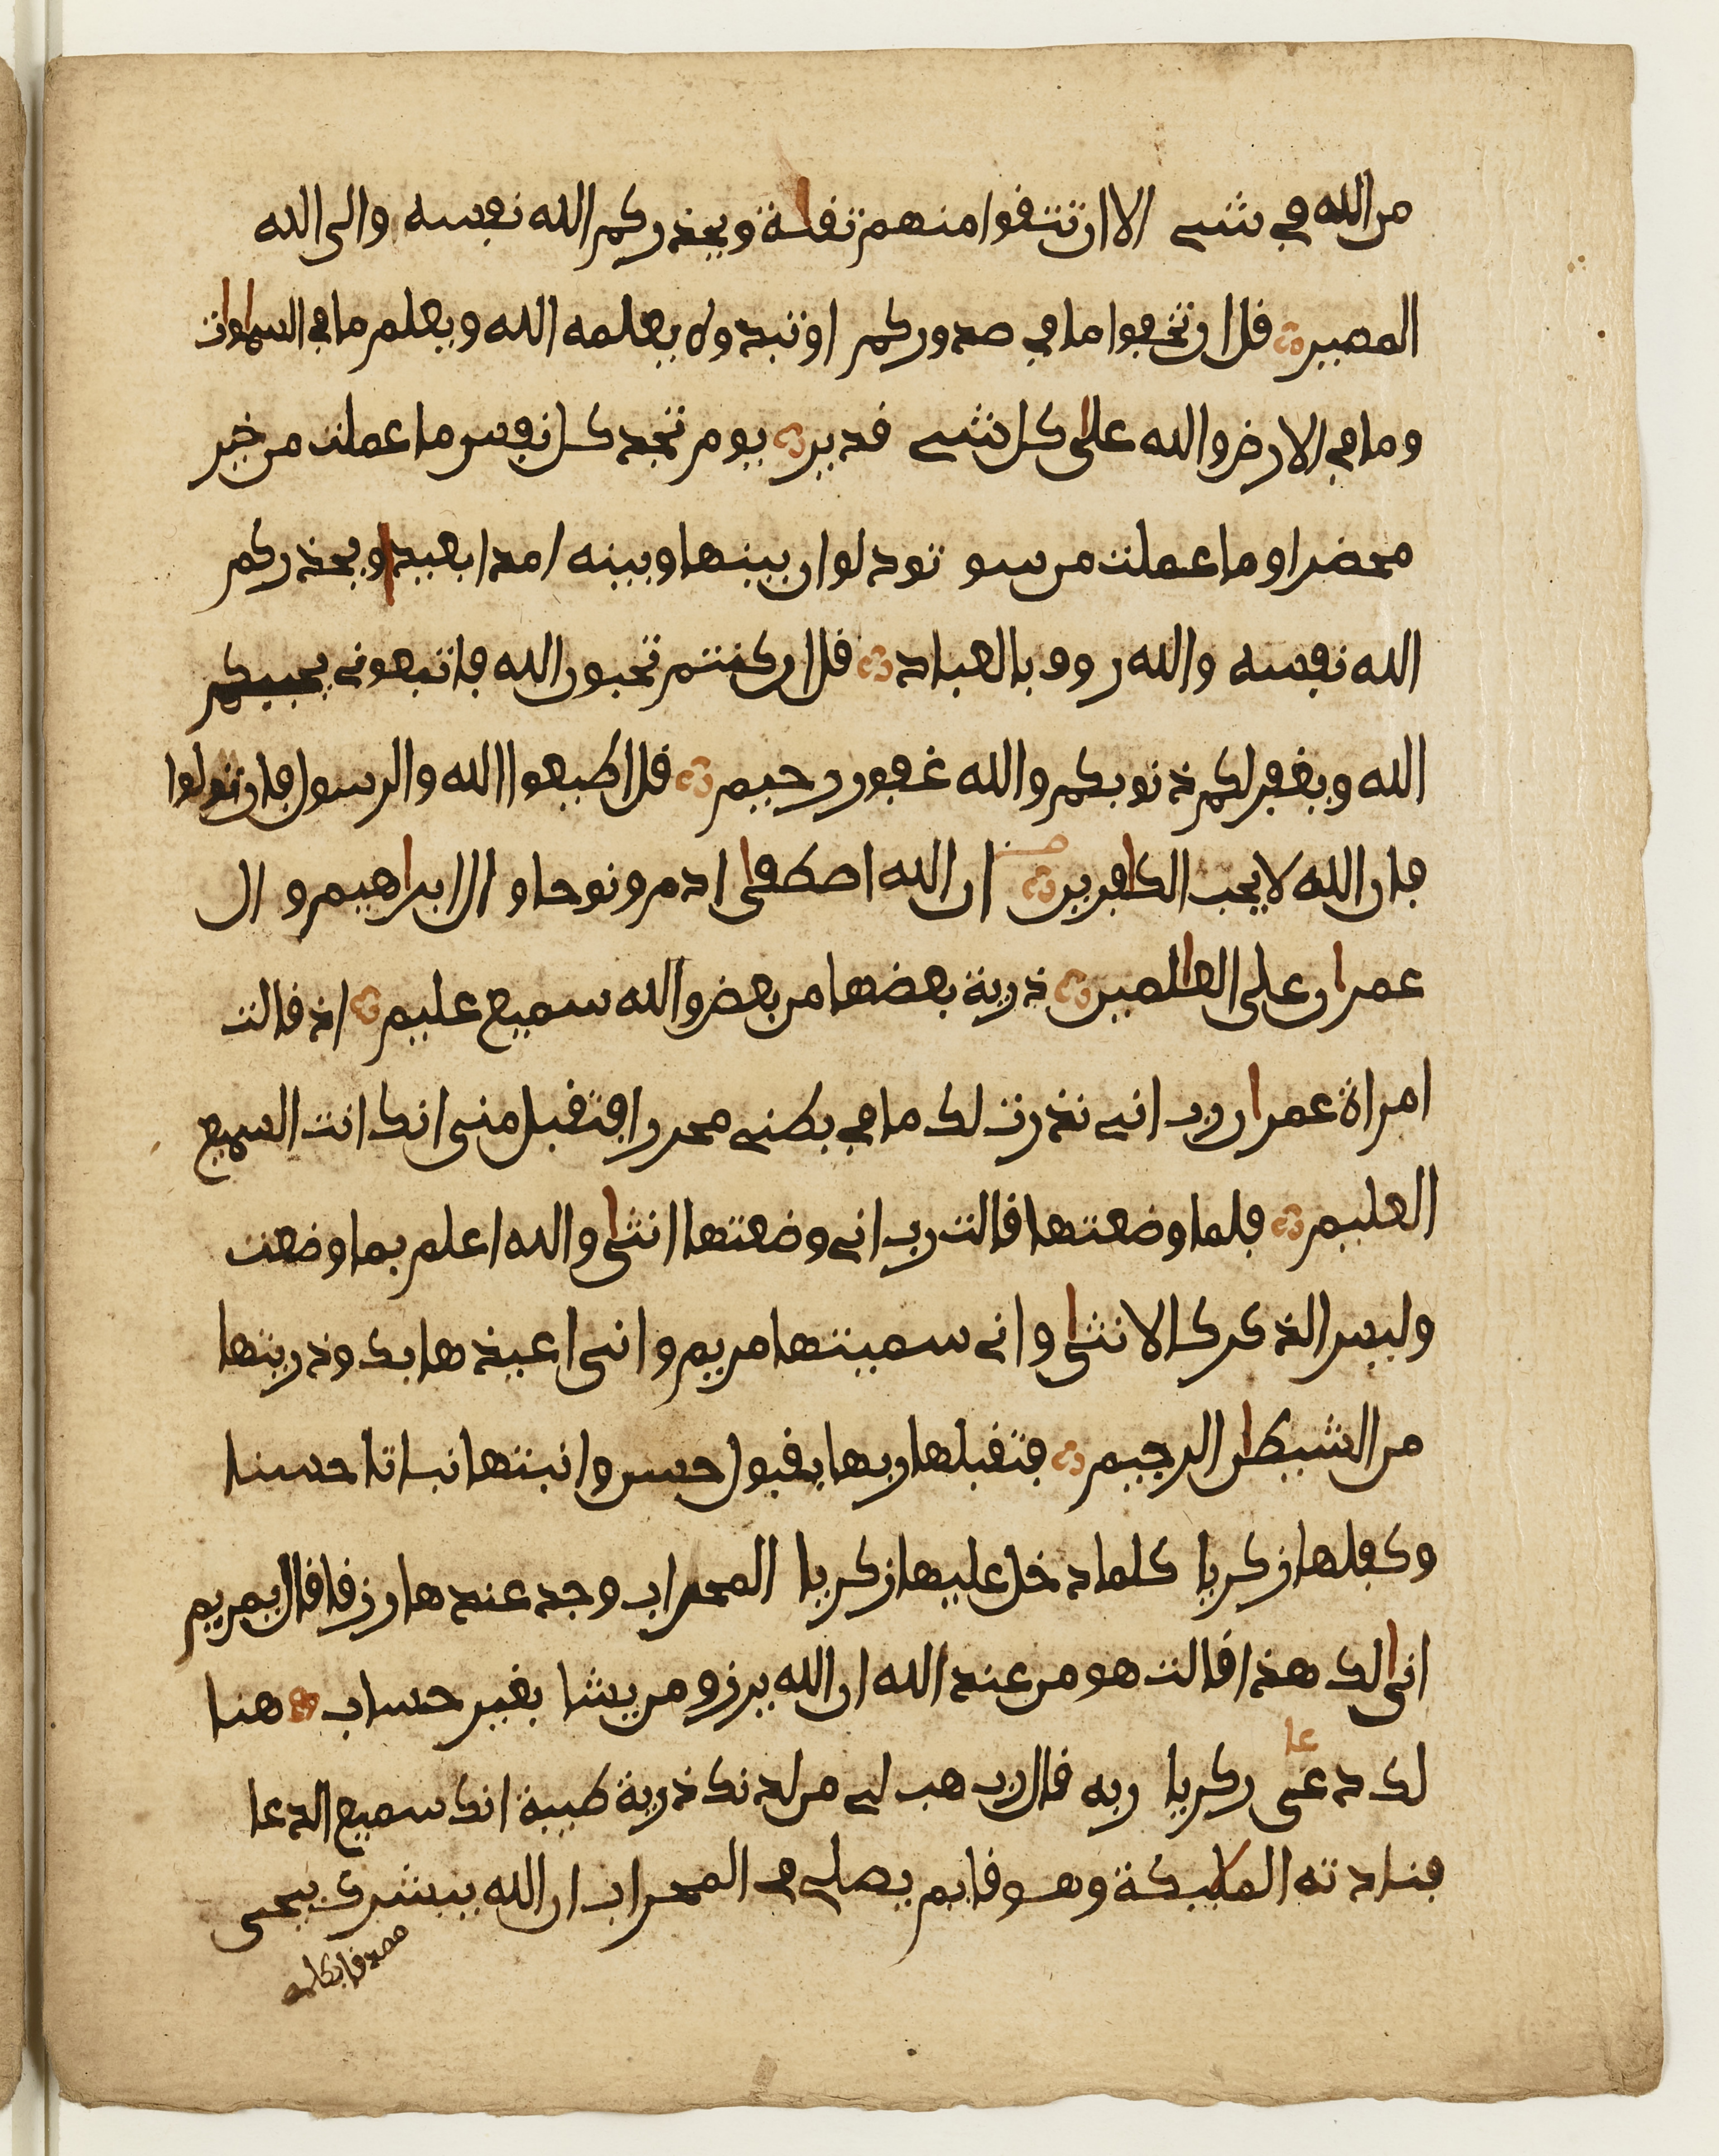 من الله في شي الا ان تتقوا منهم تقاىة ويحذركم الله نفسه والى الله
المصير قل ان تخفوا ما في صدوركم او تبدوه يعلمه الله ويعلم ما في السماوات
وما في الارض والله على كل شي قدير يوم تجد كل نفس ما عملت من خير
محضرا وما عملت من سو تود لو ان بينها وبينه امدا بعيدا ويحذركم
الله نفسه والله روف بالعباد قل ان كنتم تحبون الله فاتبعوني يحببكم
الله ويغفر لكم ذنوبكم والله غفور رحيم قل اطيعوا الله والرسول فان تولوا
فان الله لا يحب الكافرين ان الله اصطفى ادم ونوحا و ال ابراهيم و ال
عمران على العالمين ذرية بعضها من بعض والله سميع عليم اذ قالت
امراة عمران رب اني نذرت لك ما في بطني محررا فتقبل مني انك انت السميع
العليم فلما وضعتها قالت رب اني وضعتها انثى والله اعلم بما وضعت
وليس الذكر كالانثى واني سميتها مريم واني اعيذها بك وذريتها
من الشيطان الرجيم فتقبلها ربها بقبول حسن وانبتها نباتا حسنا
وكفلها زكريا كلما دخل عليها زكريا المحراب وجد عندها رزقا قال يمريم
انى لك هذا قالت هو من عند الله ان الله يرزق من يشا بغير حساب هنا
عا
لك دعى زكريا ربه قال رب هب لي من لدنك ذرية طيبة انك سميع الدعا
فنادته الملايكة وهو قايم يصلي في المحراب ان الله يبشرك بيحيى
مصدقا بكلمة